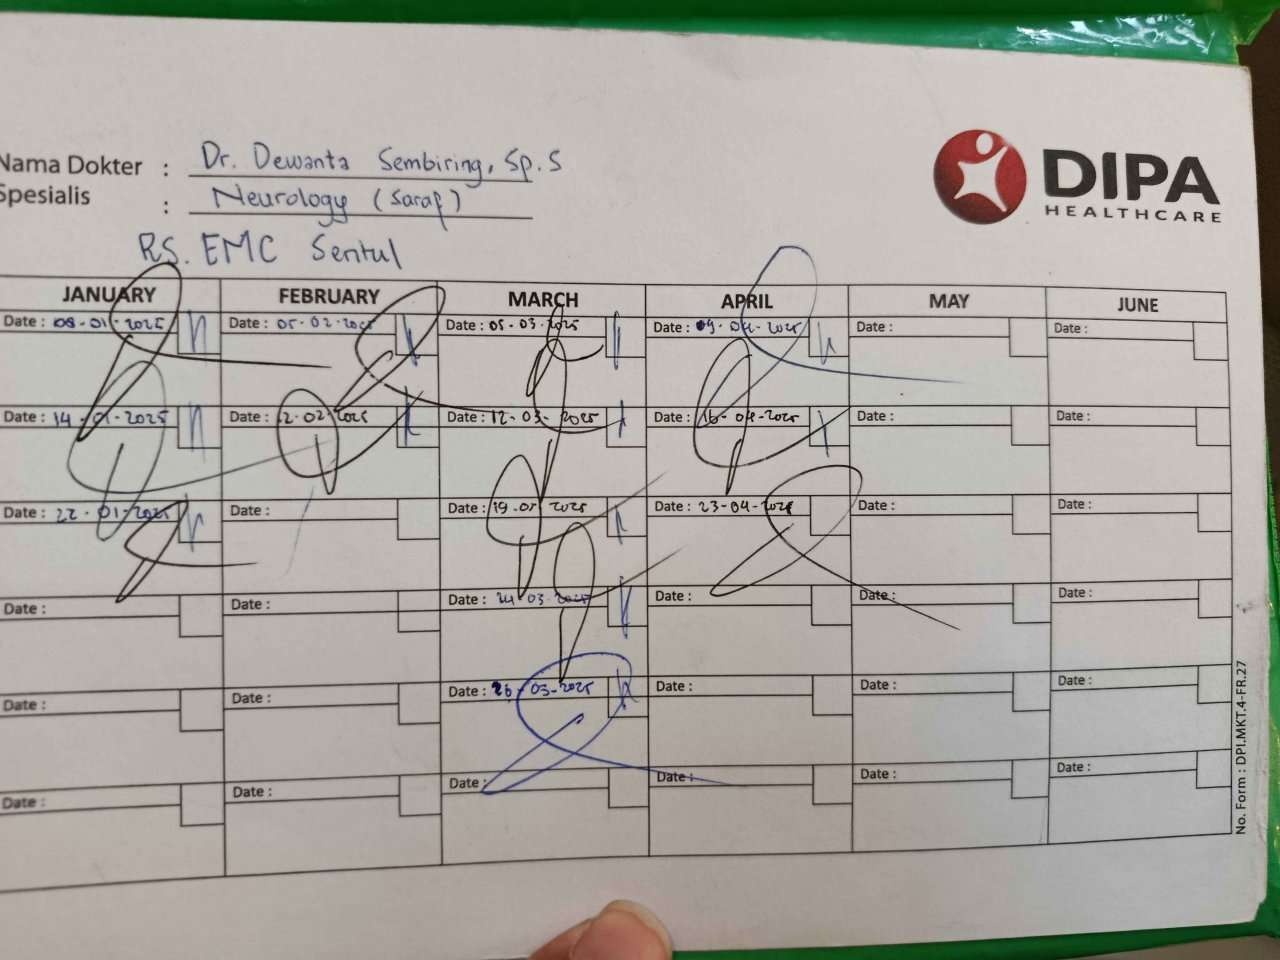 Nama Dokter : Dr. Dewanta Sembiring, Sp.S
Spesialis : Neurology (Saraf)
RS. EMC Sentul
DIPA
HEALTHCARE
JANUARY FEBRUARY MARCH APRIL MAY JUNE
Date : 08-01-2025 Date : 05-02-2025 Date : 05-03-2025 Date : 09-04-2025 Date : Date :
Date : 14-01-2025 Date : 12-02-2025 Date : 12-03-2025 Date : 16-04-2025 Date : Date :
Date : 22-01-2025 Date : Date : 19-03-2025 Date : 23-04-2025 Date : Date :
Date : Date : Date : 24-03-2025 Date : Date : Date :
Date : Date : Date : 26-03-2025 Date : Date : Date :
Date : Date : Date : Date : Date : Date :
No. Form : DPI.MKT.4-FR.27